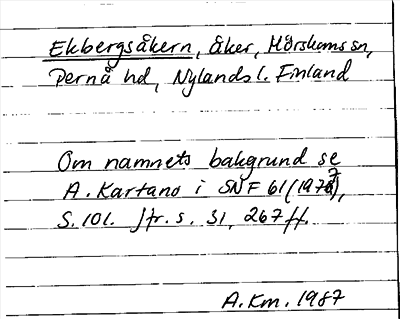 Ekbergsåkern, åker, Mörskoms sn,
Pernå hd, Nylands l. Finland
Om namnets bakgrund se
A. Kartano i SNF 61 (1977),
S. 101. Jfr. s. 31, 267 ff.
A.Km. 1987